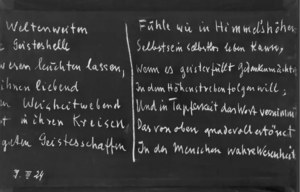 Weltenweiten
Geisteshelle
leuchten lassen,
ihnen liebend
Weisheitwebend
t in ihren Kreisen
guten Geistesschaffen
Fühle wie in Himmelshöhen
Selbstsein selbstlos leben kann,
Wenn es geisterfüllt Gedankenmächten
In dem Höhenstreben folgen will,
Und in Tapferkeit das Wort vernimmt,
Das von oben gnadevoll ertönet
In der Menschen wahre Wesenheit